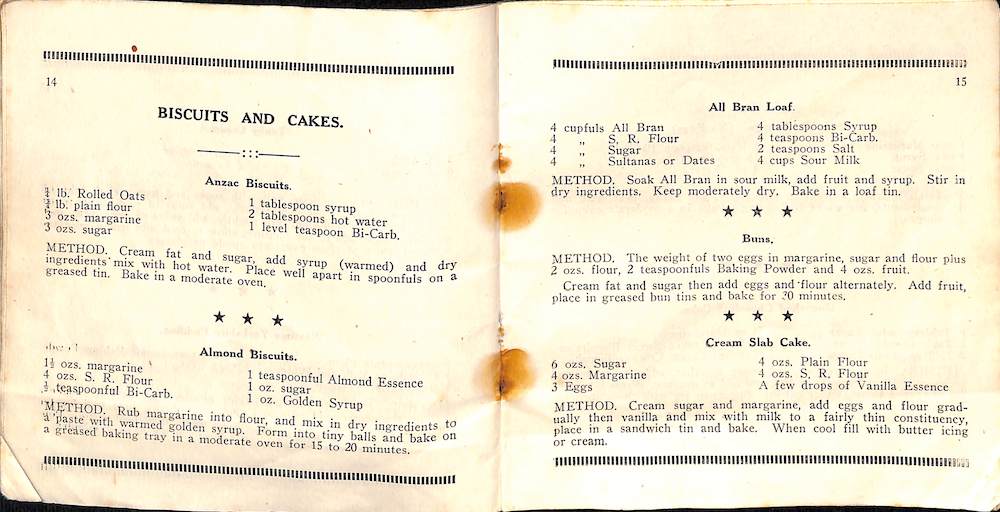 14
BISCUITS AND CAKES.
Anzac Biscuits.
¼ lb. Rolled Oats
¼ lb. plain flour
3 ozs. margarine
3 ozs. sugar
1 tablespoon syrup
2 tablespoons hot water
1 level teaspoon Bi-Carb.
METHOD. Cream fat and sugar, add syrup (warmed) and dry
ingredients mix with hot water. Place well apart in spoonfuls on a
greased tin. Bake in a moderate oven.
★ ★ ★
Almond Biscuits.
1½ ozs. margarine
4 ozs. S. R. Flour
½ teaspoonful Bi-Carb.
1 teaspoonful Almond Essence
1 oz. sugar
1 oz. Golden Syrup
METHOD. Rub margarine into flour, and mix in dry ingredients to
a paste with warmed golden syrup. Form into tiny balls and bake on
a greased baking tray in a moderate oven for 15 to 20 minutes.
15
All Bran Loaf.
4 cupfuls All Bran
4 „ S. R. Flour
4 „ Sugar
4 „ Sultanas or Dates
4 tablespoons Syrup
4 teaspoons Bi-Carb.
2 teaspoons Salt
4 cups Sour Milk
METHOD. Soak All Bran in sour milk, add fruit and syrup. Stir in
dry ingredients. Keep moderately dry. Bake in a loaf tin.
★ ★ ★
Buns.
METHOD. The weight of two eggs in margarine, sugar and flour plus
2 ozs. flour, 2 teaspoonfuls Baking Powder and 4 ozs. fruit.
Cream fat and sugar then add eggs and flour alternately. Add fruit,
place in greased bun tins and bake for 30 minutes.
★ ★ ★
Cream Slab Cake.
6 ozs. Sugar
4 ozs. Margarine
3 Eggs
4 ozs. Plain Flour
4 ozs. S. R. Flour
A few drops of Vanilla Essence
METHOD. Cream sugar and margarine, add eggs and flour grad-
ually then vanilla and mix with milk to a fairly thin constituency,
place in a sandwich tin and bake. When cool fill with butter icing
or cream.